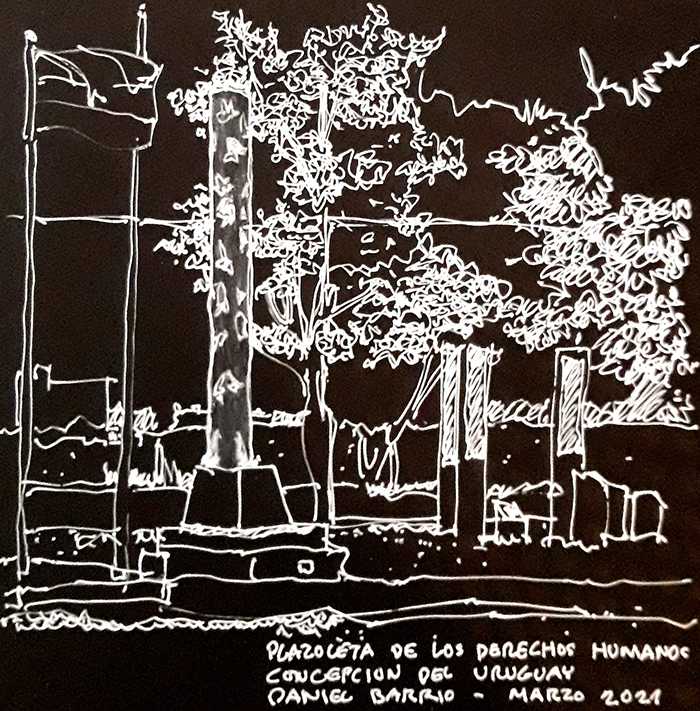 PLAZOLETA DE LOS DERECHOS HUMANOS
CONCEPCION DEL URUGUAY
DANIEL BARRIO - MARZO 2021